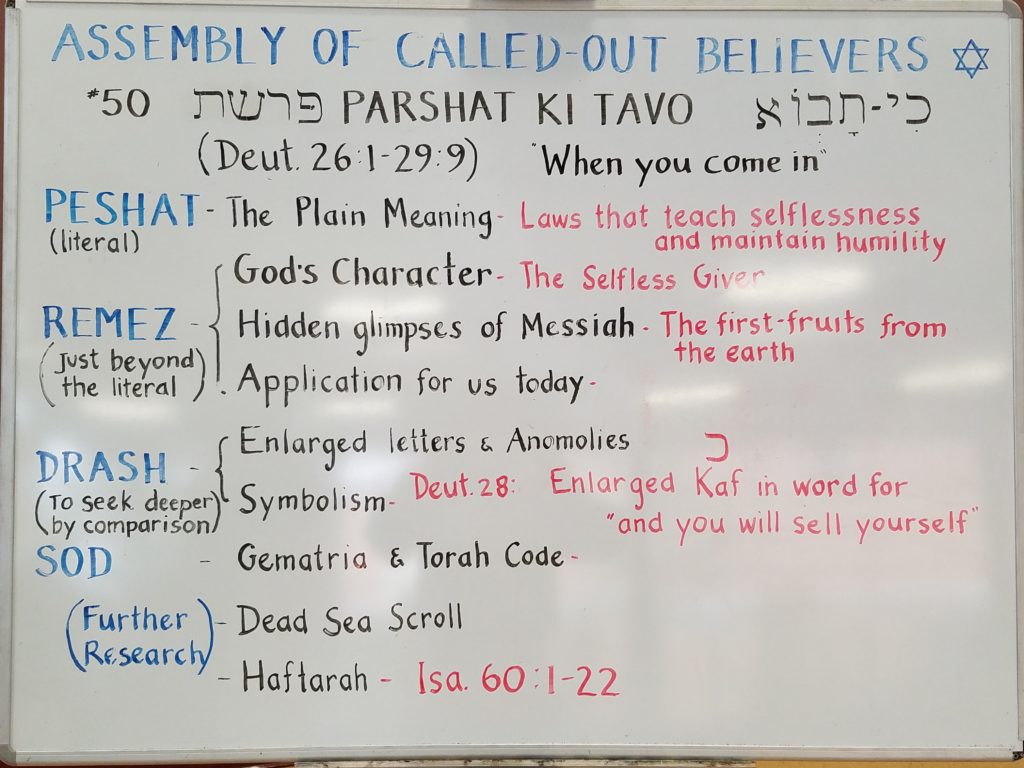 ASSEMBLY OF CALLED-OUT BELIEVERS
#50 פרשת PARSHAT KI TAVO כִּי-תָבוֹא
(Deut. 26:1-29:9) "When you come in"
PESHAT - The Plain Meaning - Laws that teach selflessness
(literal) and maintain humility
God's Character - The Selfless Giver
REMEZ - Hidden glimpses of Messiah - The first-fruits from
(Just beyond the earth
the literal) Application for us today -
Enlarged letters & Anomolies כ
DRASH -
(To seek deeper Symbolism - Deut. 28: Enlarged Kaf in word for
by comparison) "and you will sell yourself"
SOD - Gematria & Torah Code -
(Further - Dead Sea Scroll
Research)
- Haftarah - Isa. 60:1-22